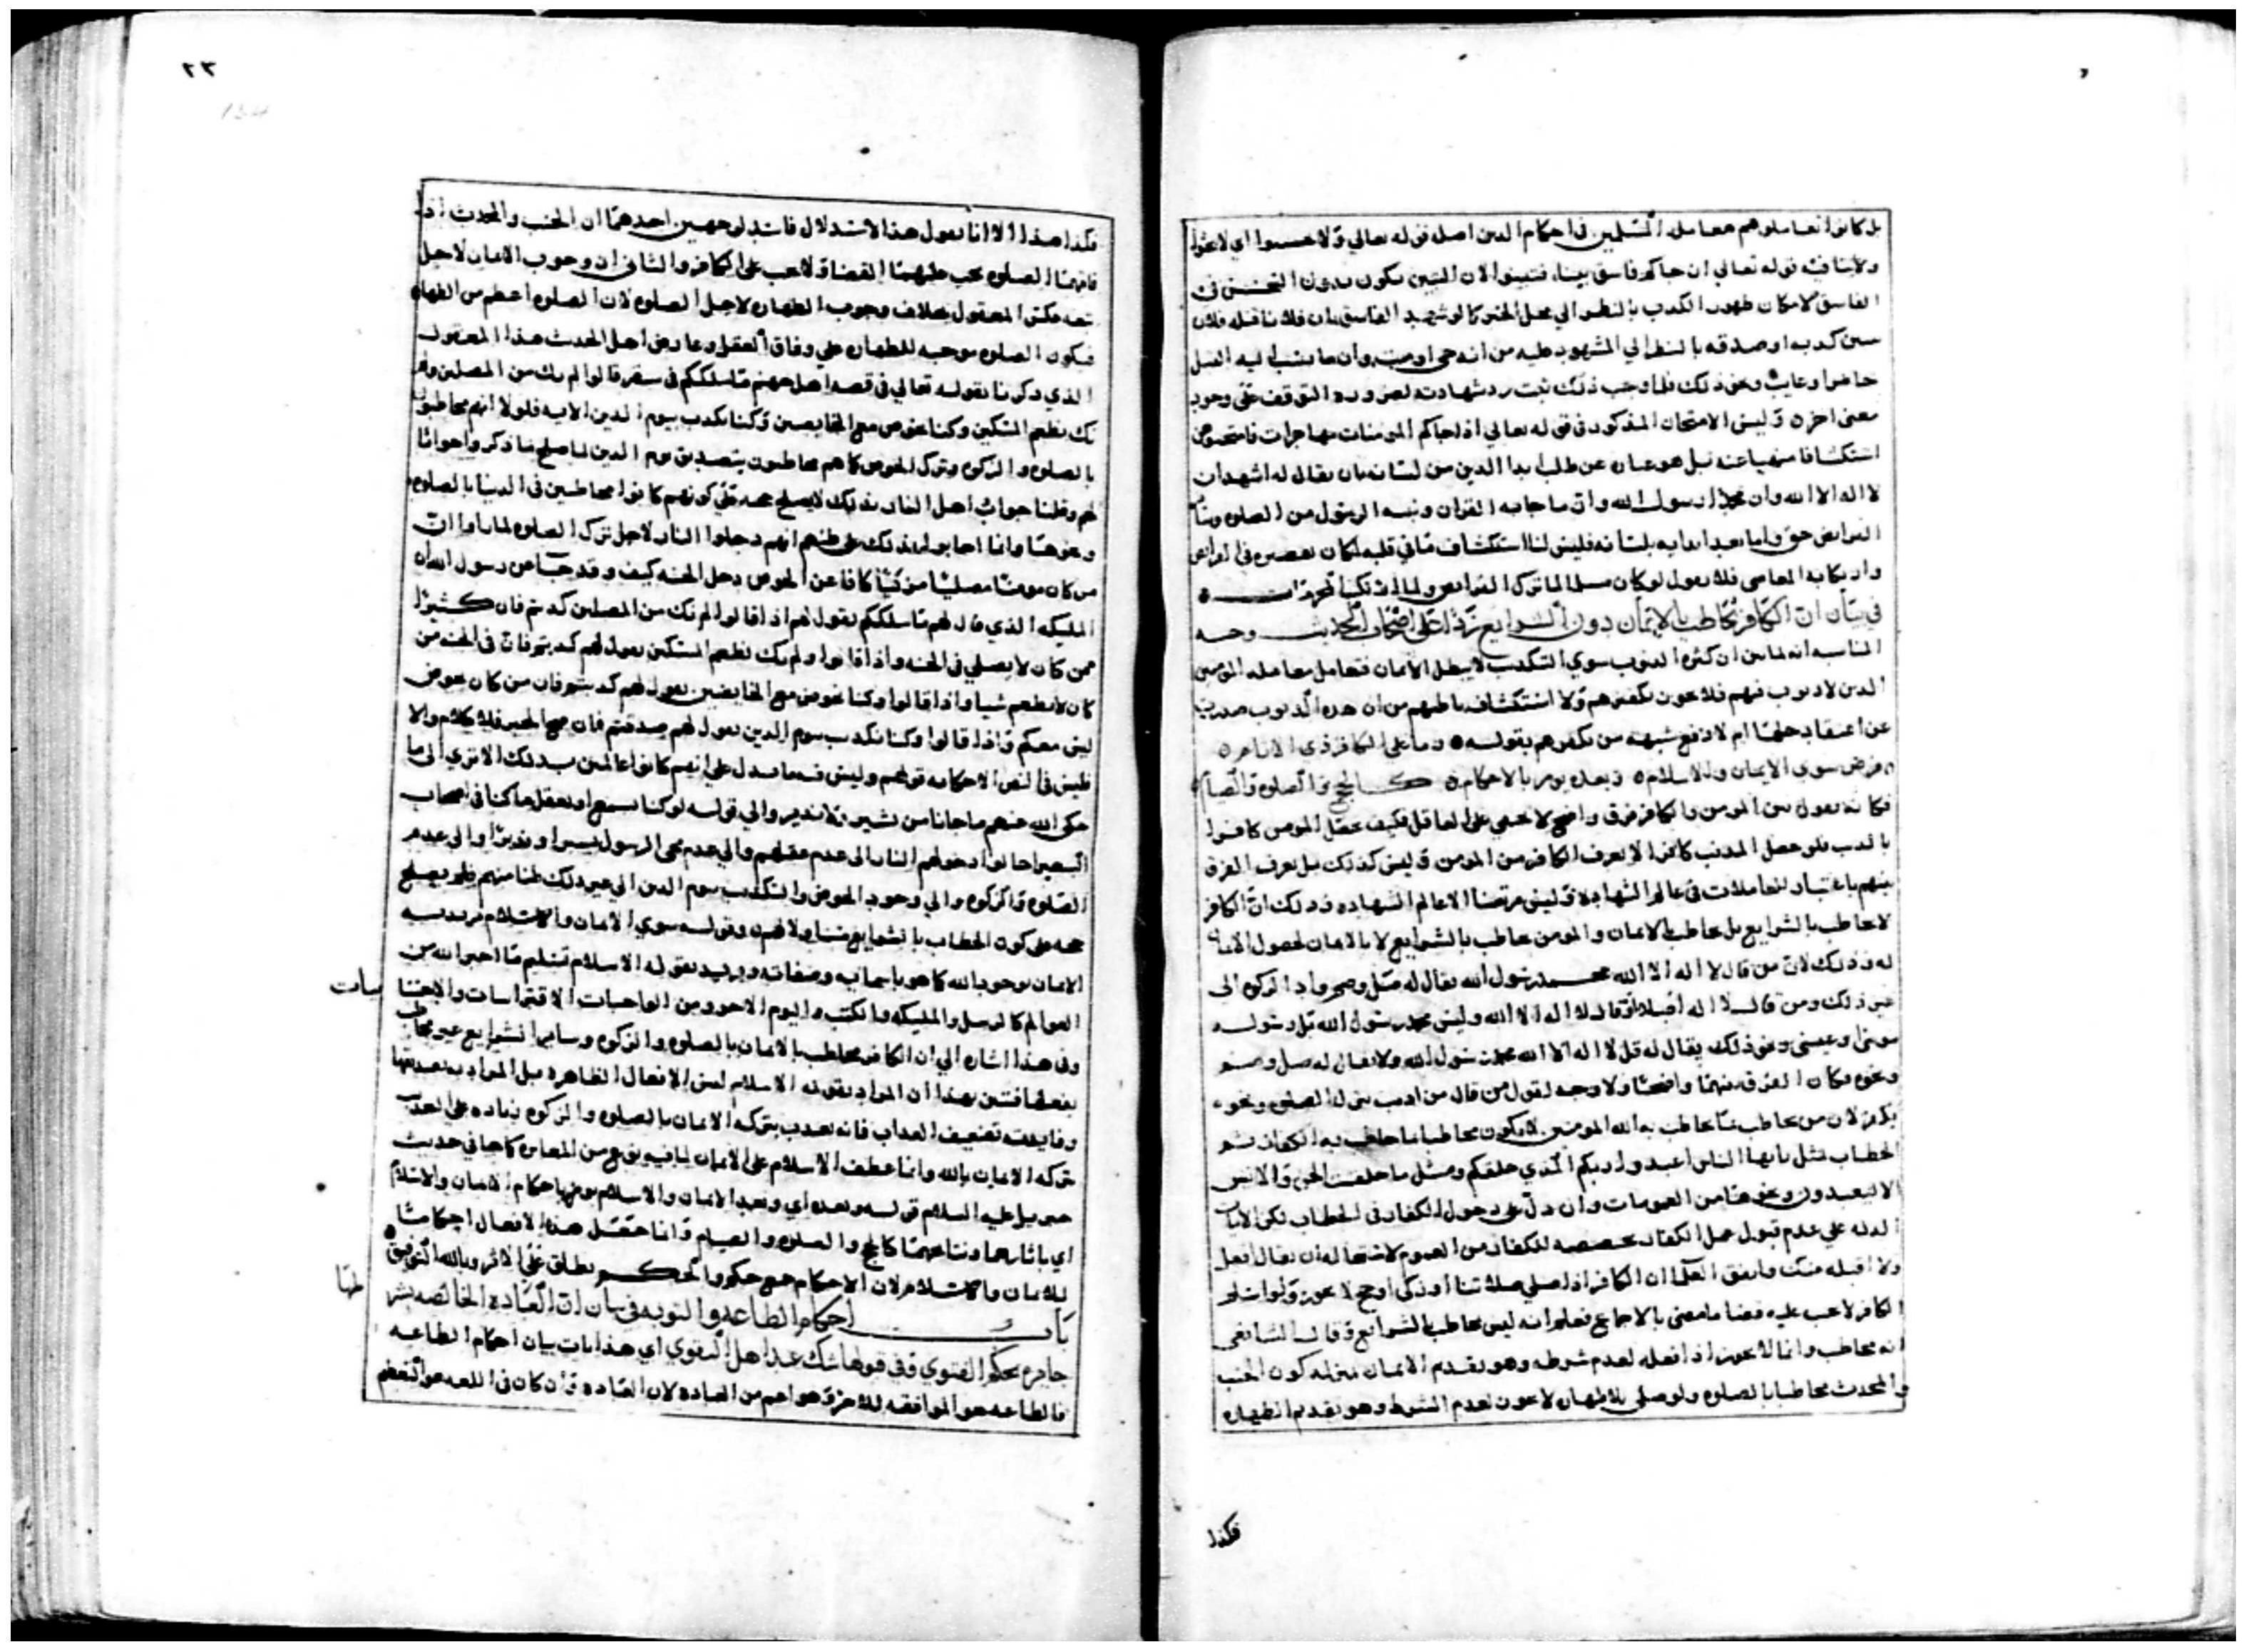 بل كانوا تعاملوهم معاملة المسلمين في احكام الدين اصله قوله تعالي ولا تجسسوا اي لا
ولا ينافيه قوله تعالي ان جاكم فاسق بنبا فتبينوا لان التبين يكون بدون التجسس في
الفاسق لامكان ظهور الكذب بالنظر الي محل الخبر كما لو شهد الفاسق بان فلانا قتله فلان
كذبه او صدقه بالنظر الي المشهود عليه من انه حي او ميت وان ما ينسب اليه القتل
حاضر او غايب ونحو ذلك فلما وجب ذلك ثبت رد شهادته لضرورة التوقف حتي وجود
معني اخر وليس الامتحان المذكور في قوله تعالي اذا جاكم المومنات مهاجرات فامتحنوهن
استكشافا منهيا عنه بل هو عبارة عن طلب ابدا الدين من لسانه بان يقال له اشهد ان
لا اله الا الله وان محمدا رسول الله وان ما جا به القران وبينه الرسول من الصلوة وسائر
الفرايض حق واما بعد ابدايه بلسانه فليس لنا استكشاف ما في قلبه لمكان تقصيره في الفرايض
وارتكابه المعاصي فلا نقول لو كان مسلما لما ترك الفرايض ولما ارتكب المحرمات
في بيان ان الكافر يخاطب بالايمان دون الشرايع ردا علي اصحاب الحديث وجه
المناسبة انه لما بين ان كثرة الذنوب سوي التكذيب لا يبطل الايمان فتعامل معاملة المومنين
الذين لا ذنوب فيهم فلا يجوز تكفيرهم ولا استكشاف باطنهم من ان هذه الذنوب صدرت
عن اعتقاد حلها ام لا دفع شبهة من يكفرهم بقوله وما علي الكافر ذي الاثام
فرض سوي الايمان والاسلام وبعده يومر بالاحكام كالحج والصلوة والصيام
فكانه يقول بين المومن والكافر فرق واضح لا يخفي علي العاقل فكيف يجعل المومن كافرا
بالذنب فلو جعل المذنب كافرا لا يعرف الكافر من المومن وليس كذلك بل يعرف الفرق
بينهم باعتبار المعاملات في عالم الشهادة وليس مرتضا الا عالم الشهادة وذلك ان الكافر
لا يخاطب بالشرايع بل يخاطب بالايمان والمومن يخاطب بالشرايع لا بالايمان لحصول الايمان
له وذلك لان من قال لا اله الا الله محمد رسول الله يقال له صل وصم واد الزكوة الي
غير ذلك ومن قال لا اله اصلا او قال لا اله الا الله وليس محمد رسول الله بل رسوله
موسي او عيسي ونحو ذلك يقال له قل لا اله الا الله محمد رسول الله ولا يقال له صل وصم
ونحوه فكان الفرق بينهما واضحا ولا وجه لقول من قال من اذنب بترك الصلوة ونحوه
يكفر لان من يخاطب بما يخاطب به الله المومنين لا يكون مخاطبا بما خاطب به الكفار ثم
الخطاب مثل يايها الناس اعبدوا ربكم الذي خلقكم ومثل ما خلقت الجن والانس
الا ليعبدون ونحوهما من العمومات وان دل علي دخول الكفار في الخطاب لكن الايات
الدالة علي عدم قبول عمل الكفار مخصصة للكفار من العموم لاستحالة ان يقال افعل
ولا اقبله منك واتفق العلما ان الكافر اذا صلي صلاتنا او زكي او حج لا يجوز ولو اسلم
الكافر لا يجب عليه قضا ما مضي بالاجماع فعلم انه ليس يخاطب بالشرايع وقال الشافعي
انه مخاطب وانما لا يجوز اذا فعله لعدم شرطه وهو تقدم الايمان بمنزلة كون الجنب
والمحدث مخاطبا بالصلوة ولو صلي بلا طهارة لا يجوز لعدم الشرط وهو تقديم الطهارة
فكذا
٢٣
فكذا هذا الا انا نقول هذا الاستدلال فاسد لوجهين احدهما ان الجنب والمحدث اذا
فاتهما الصلوة يجب عليهما القضا ولا يجب علي الكافر والثاني ان وجوب الايمان لاجل
عكس المعقول بخلاف وجوب الطهارة لاجل الصلوة لان الصلوة اعظم من الطهارة
فيكون الصلوة موجبة للطهارة علي وفاق العقل وعارض اهل الحديث هذا المعقول
الذي ذكرنا بقوله تعالي في قصة اهل جهنم ما سلككم في سقر قالوا لم نك من المصلين ولم
نك نطعم المسكين وكنا نخوض مع الخايضين وكنا نكذب بيوم الدين الاية فلولا انهم مخاطبون
بالصلوة والزكوة وترك الخوض كما هم مخاطبون بتصديق يوم الدين لما صلح ما ذكروا جوابا
لهم وقلنا جواب اهل النار بذلك لا يصلح حجة علي كونهم كانوا مخاطبين في الدنيا بالصلوة
ونحوها وانما اجابوا بذلك علي ظنهم انهم دخلوا النار لاجل ترك الصلوة لما راوا ان
من كان مومنا مصليا مزكيا كافا عن الخوض دخل الجنة كيف وقد جا عن رسول الله ان
المليكة الذي قال لهم ما سلككم يقول لهم اذا قالوا لم نك من المصلين كذبتم فان كثيرا
ممن كان لا يصلي في الجنة واذا قالوا ولم نك نطعم المسكين يقول لهم كذبتم فان في الجنة من
كان لا يطعم شيا واذا قالوا وكنا نخوض مع الخايضين يقول لهم كذبتم فان من كان يخوض
ليس معكم واذا قالوا وكنا نكذب بيوم الدين يقول لهم صدقتم فان صح الخبر فلا كلام والا
فليس في النص الا حكاية قولهم وليس فيه ما يدل علي انهم كانوا عالمين بذلك الا تري الي ما
حكي الله عنهم ما جانا من بشير ولا نذير والي قوله لو كنا نسمع او نعقل ما كنا في اصحاب
السعير احالوا دخولهم النار الي عدم عقلهم والي عدم مجي الرسول بشيرا ونذيرا والي عدم
الصلوة والزكوة والي وجود الخوض والتكذيب بيوم الدين الي غير ذلك ظنا منهم فلم يصلح
حجة علي كون الخطاب بالشرايع متناولا لهم وقوله سوي الايمان والاسلام يريد به
الايمان بوجود الله كما هو باسمايه وصفاته ويريد بقوله الاسلام تسليم ما اخبر الله من
العوالم كالرسل والمليكة والكتب واليوم الاخر ومن الواجبات الاقتراسات والاجتنا
بات
وفي هذا اشارة الي ان الكافر مخاطب بالايمان بالصلوة والزكوة وساير الشرايع غير مخاطب
بفعلها فتبين بهذا ان المراد بقوله الاسلام ليس الافعال الظاهرة بل المراد به تصديقها
وفايدته تضعيف العذاب فانه يعذب بتركه الايمان بالصلوة والزكوة زيادة علي العذاب
بتركه الايمان بالله وانما عطف الاسلام علي الايمان لما فيه نوع من المغايرة كما جا في حديث
جبريل عليه السلام قوله وبعده اي وبعد الايمان والاسلام يومر باحكام الايمان والاسلام
اي باثارهما ونتايجهما كالحج والصلوة والصيام وانما جعل هذه الافعال احكاما
للايمان والاسلام لان الاحكام جمع حكم والحكم يطلق علي الاثر وبالله التوفيق
باب احكام الطاعة والتوبة في بيان ان العبادة الخالصة بشر
طها
جايزة بحكم الفتوي وفي قولها شك عند اهل التقوي اي هذا باب بيان احكام الطاعة
فالطاعة هو الموافقة للامر وهو اعم من العبادة لان العبادة وان كان في اللغة هو التعظيم